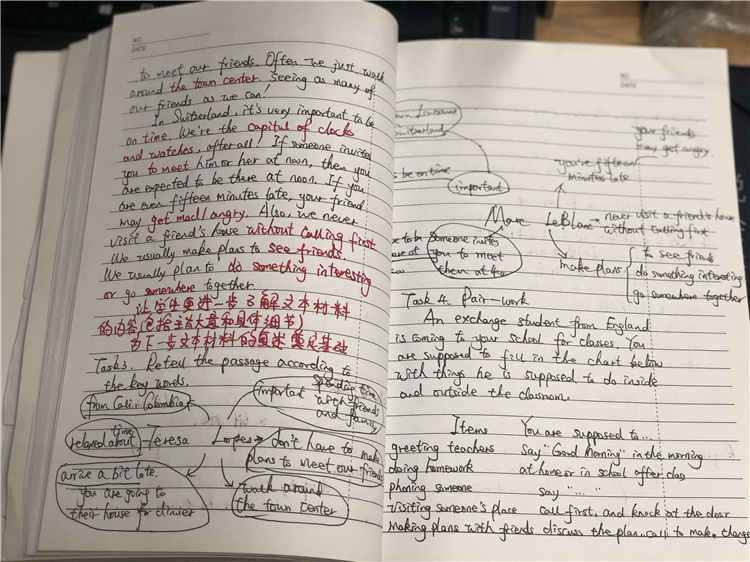 NO.
DATE
to meet our friends. Often we just walk
around the town center. Seeing as many of
our friends as we can!
In Switzerland, it's very important to be
on time. We're the capital of clocks
and watches, after all! If someone invites
you to meet him or her at noon, then you
are expected to be there at noon. If you
are even fifteen minutes late, your friend
may get mad/angry. Also, we never
visit a friend's house without calling first
We usually make plans to see friends.
We usually plan to do something interesting
or go somewhere together.
让学生更进一步了解文本材料
的内容(包括主旨大意和具体细节)
为下一步文本材料的复述奠定基础
Task3. Retell the passage according to
the key words.
from Cali Colombia
time
relaxed about
Teresa Lopez
important
spending time
with friends
and family
don't have to make
plans to meet our friends
arrive a bit late.
you are going to
their house for dinner
walk around
the town center
NO.
DATE
Lausanne
Switzerland
be on time
important
you're fifteen
minutes late
your friends
may get angry
Marc LeBlanc
never visit a friend's house
without calling first
someone invites
you to meet
them at
make plans
to see friends
do something interesting
go somewhere together
Task 4. Pair-work
An exchange student from England
is coming to your school for classes. You
are supposed to fill in the chart below
with things he is supposed to do inside
and outside the classroom.
Items You are supposed to...
greeting teachers say "Good Morning" in the morning
doing homework at home or in school after class
phoning someone say "......"
visiting someone's place call first, and knock at the door
making plans with friends discuss the plan. call to make change